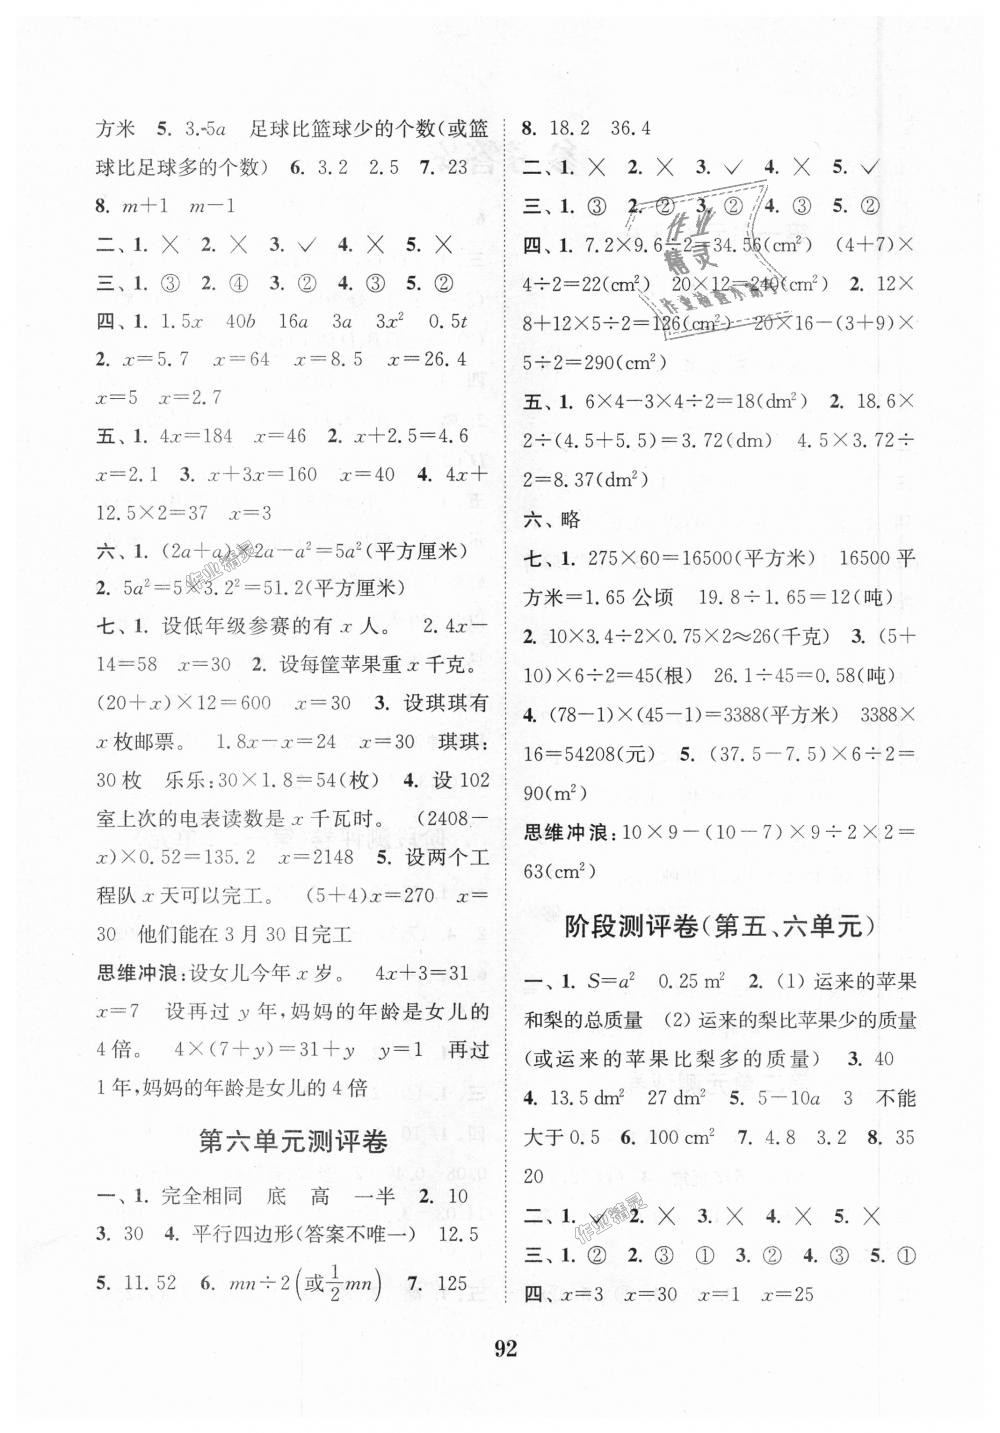 方米　5. 3.-5a　足球比篮球少的个数(或篮
球比足球多的个数)　6. 3.2　2.5　7. 23
8. m+1　m-1
二、1. ×　2. ×　3. ✓　4. ×　5. ×
三、1. ③　2. ④　3. ②　4. ③　5. ②
四、1. 1.5x　40b　16a　3a　3x²　0.5t
2. x=5.7　x=64　x=8.5　x=26.4
x=5　x=2.7
五、1. 4x=184　x=46　2. x+2.5=4.6
x=2.1　3. x+3x=160　x=40　4. 4x+
12.5×2=37　x=3
六、1. (2a+a)×2a-a²=5a²(平方厘米)
2. 5a²=5×3.2²=51.2(平方厘米)
七、1. 设低年级参赛的有 x 人。　2.4x-
14=58　x=30　2. 设每筐苹果重 x 千克。
(20+x)×12=600　x=30　3. 设琪琪有
x 枚邮票。　1.8x-x=24　x=30　琪琪:
30 枚　乐乐:30×1.8=54(枚)　4. 设 102
室上次的电表读数是 x 千瓦时。　(2408-
x)×0.52=135.2　x=2148　5. 设两个工
程队 x 天可以完工。　(5+4)x=270　x=
30　他们能在 3 月 30 日完工
思维冲浪:设女儿今年 x 岁。　4x+3=31
x=7　设再过 y 年,妈妈的年龄是女儿的
4 倍。　4×(7+y)=31+y　y=1　再过
1 年,妈妈的年龄是女儿的 4 倍
第六单元测评卷
一、1. 完全相同　底　高　一半　2. 10
3. 30　4. 平行四边形(答案不唯一)　12.5
5. 11.52　6. mn÷2(或1/2mn)　7. 125
8. 18.2　36.4
二、1. ×　2. ×　3. ✓　4. ×　5. ✓
三、1. ③　2. ②　3. ②　4. ③　5. ②
四、1. 7.2×9.6÷2=34.56(cm²)　(4+7)×
4÷2=22(cm²)　20×12=240(cm²)　2. 12×
8+12×5÷2=126(cm²)　20×16-(3+9)×
5÷2=290(cm²)
五、1. 6×4-3×4÷2=18(dm²)　2. 18.6×
2÷(4.5+5.5)=3.72(dm)　4.5×3.72÷
2=8.37(dm²)
六、略
七、1. 275×60=16500(平方米)　16500 平
方米=1.65 公顷　19.8÷1.65=12(吨)
2. 10×3.4÷2×0.75×2≈26(千克)　3. (5+
10)×6÷2=45(根)　26.1÷45=0.58(吨)
4. (78-1)×(45-1)=3388(平方米)　3388×
16=54208(元)　5. (37.5-7.5)×6÷2=
90(m²)
思维冲浪:10×9-(10-7)×9÷2×2=
63(cm²)
阶段测评卷(第五、六单元)
一、1. S=a²　0.25 m²　2. (1) 运来的苹果
和梨的总质量　(2) 运来的梨比苹果少的质量
(或运来的苹果比梨多的质量)　3. 40
4. 13.5 dm²　27 dm²　5. 5-10a　3　不能
大于 0.5　6. 100 cm²　7. 4.8　3.2　8. 35
20
二、1. ✓　2. ×　3. ×　4. ×　5. ×
三、1. ②　2. ③　①　3. ②　4. ③　5. ①
四、x=3　x=30　x=1　x=25
92
作业
精灵
作业检查小助手
作业精灵
作业精灵